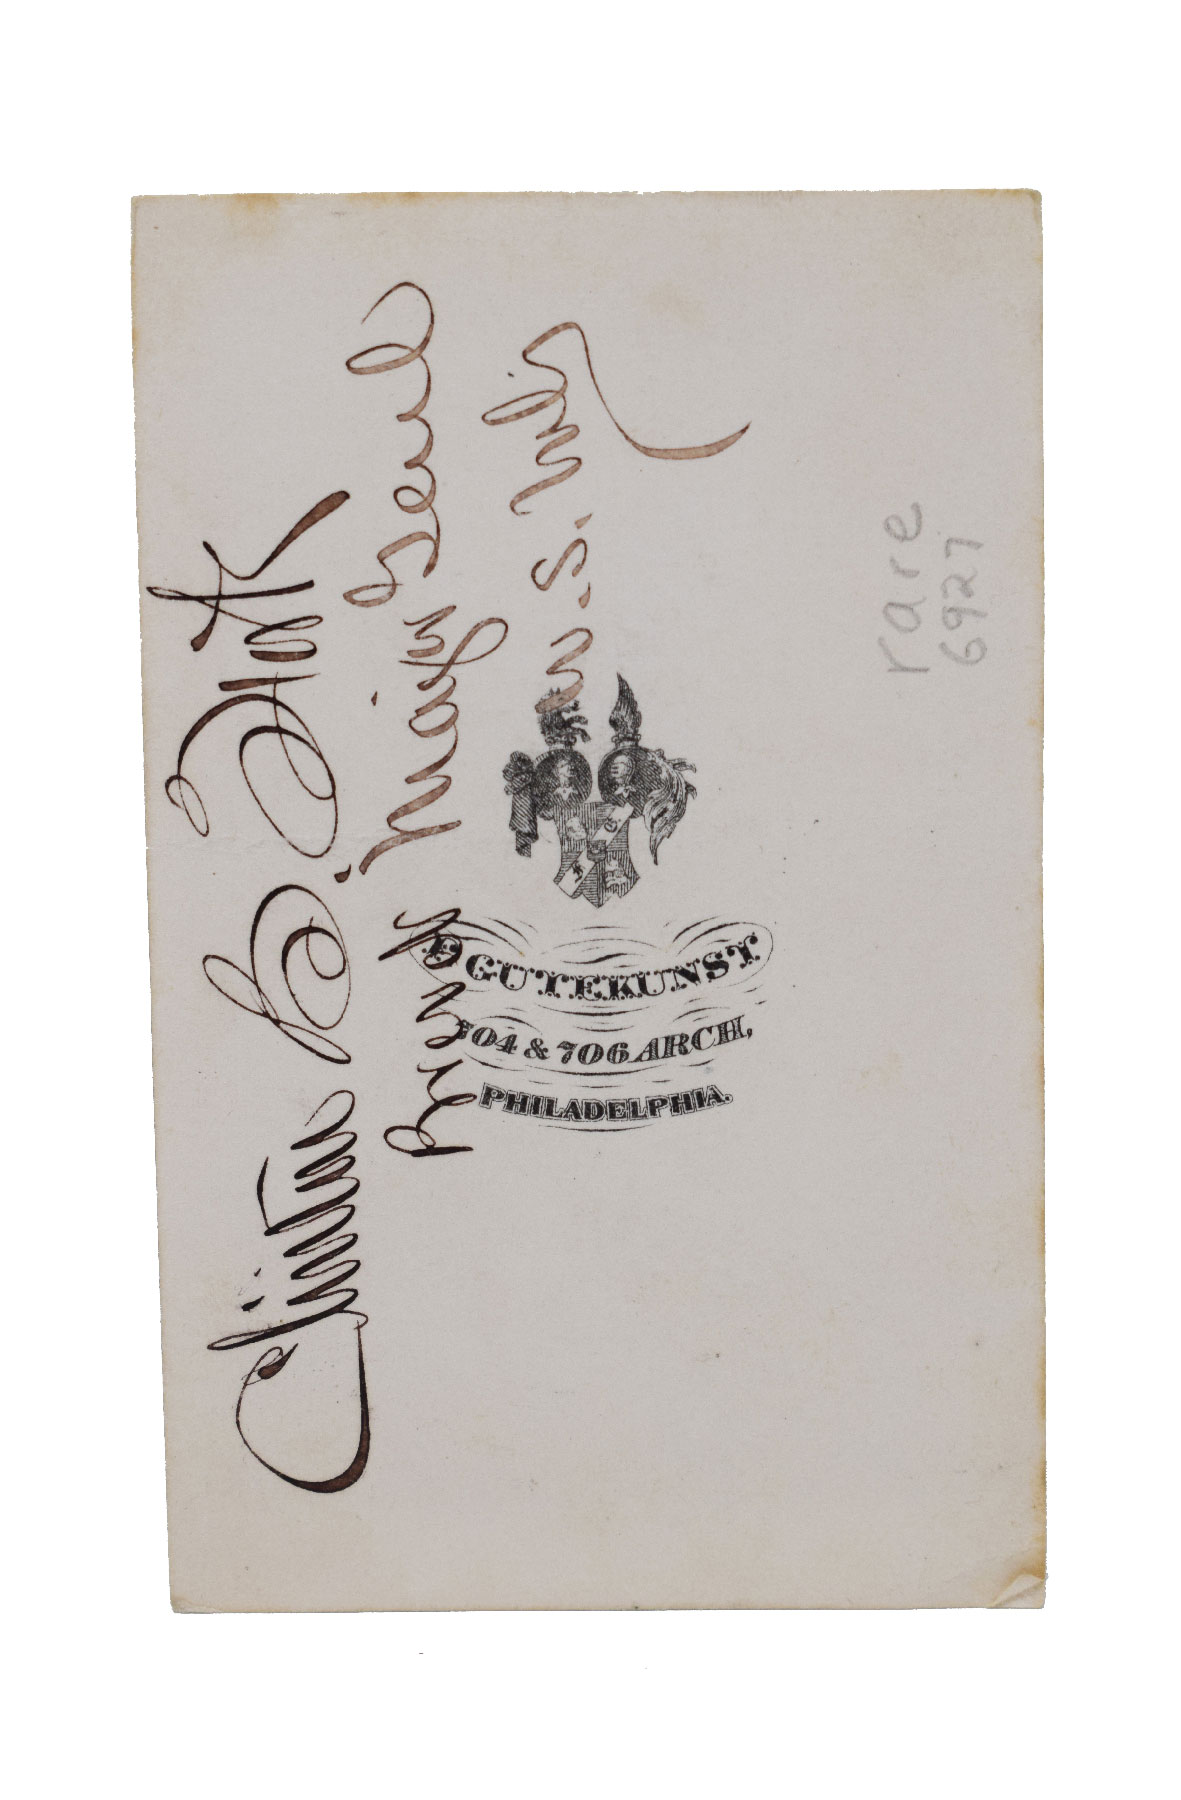 Clinton B. Fisk
Brevt Major Genl
U.S. Vols
F. GUTEKUNST
704 & 706 ARCH,
PHILADELPHIA.
rare
6927